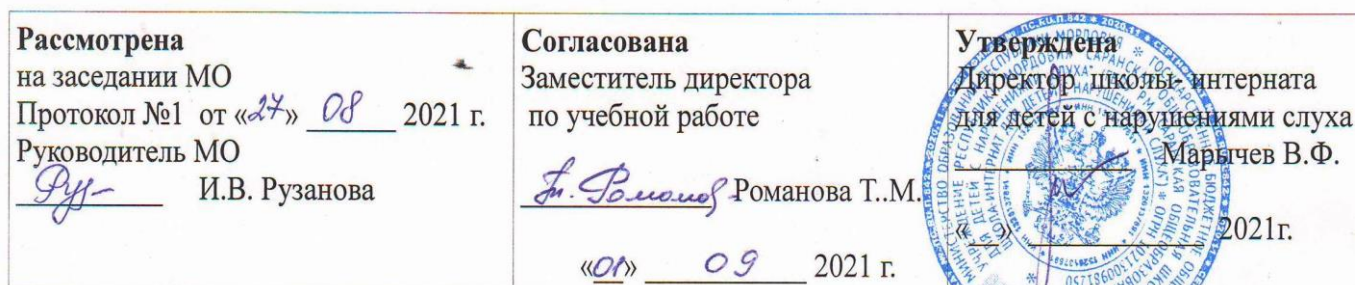 Рассмотрена
на заседании МО
Протокол №1 от «27» 08 2021 г.
Руководитель МО
И.В. Рузанова
Согласована
Заместитель директора
по учебной работе
Романова Т..М.
«01» 09 2021 г.
Утверждена
Директор школы- интерната
для детей с нарушениями слуха
Марычев В.Ф.
« » 2021г.